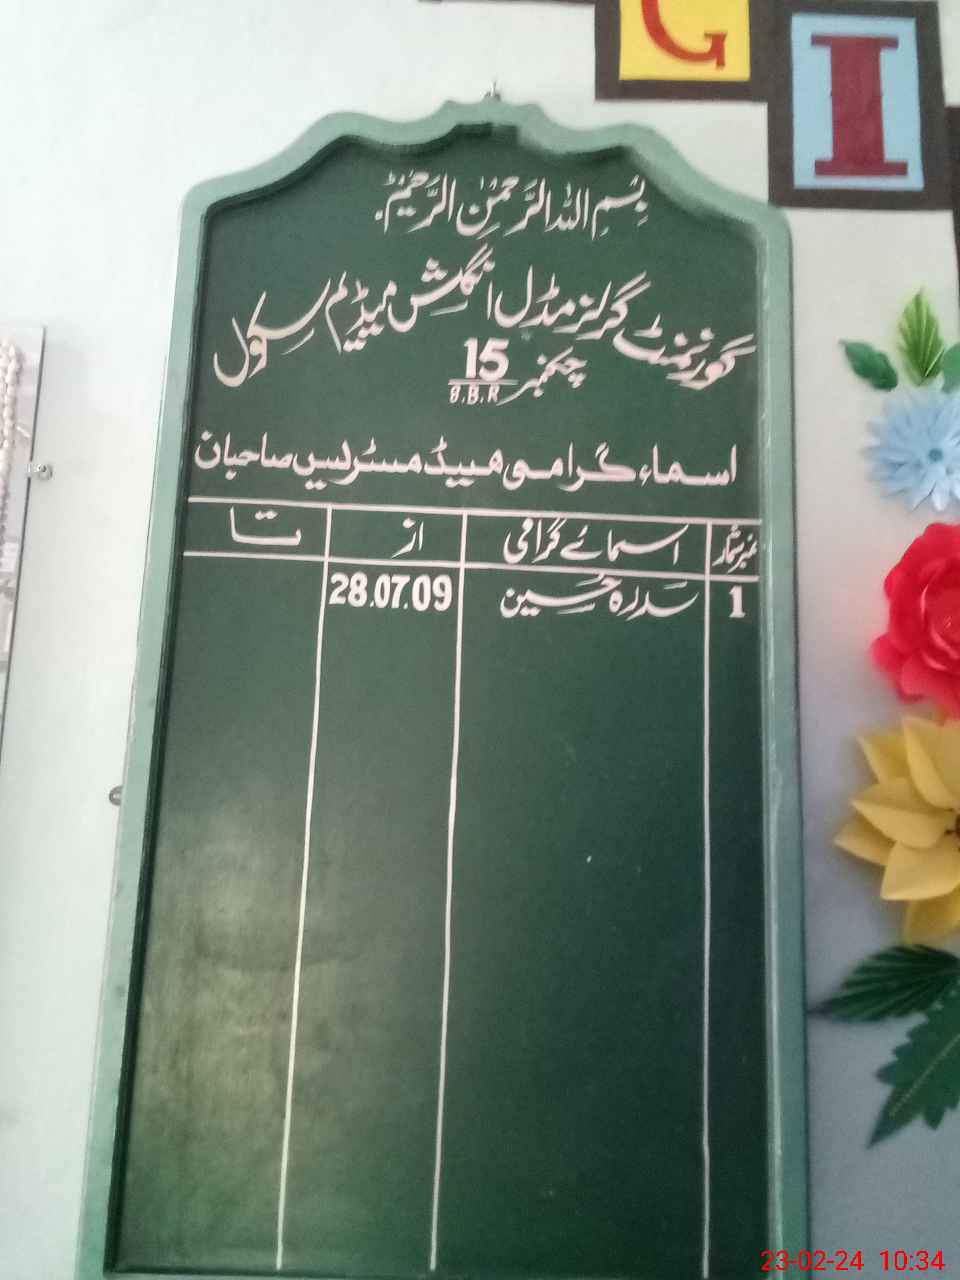 G I
بِسْمِ اللہ الرَّحمٰنِ الرَّحیْم.
گورنمنٹ گرلز مڈل انگلش میڈیم سکول
چکنمبر 15
8.B.R
اسماء گرامی ھیڈ مسٹریس صاحبان
نمبر شمار اسمائے گرامی از تا
1 سدرہ حُسین 28.07.09
23-02-24 10:34